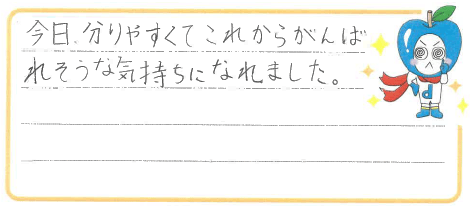 今日、分りやすくてこれからがんば
れそうな気持ちになれました。